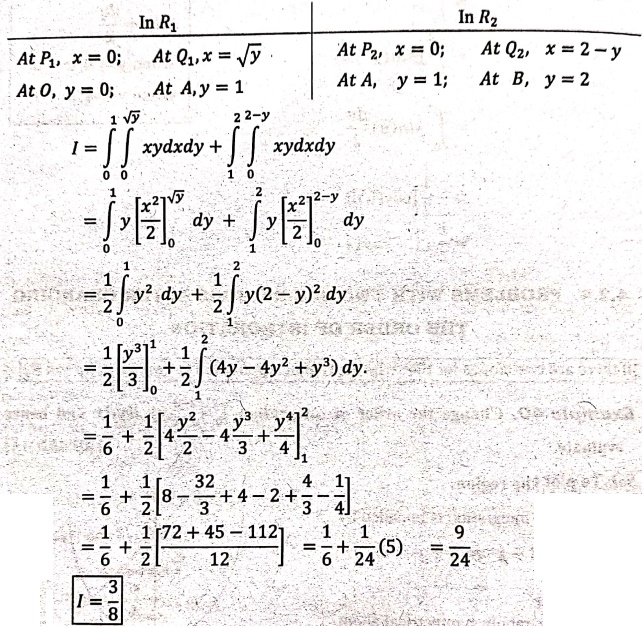 In R₁ In R₂
At P₁, x = 0; At Q₁, x = √y At P₂, x = 0; At Q₂, x = 2 – y
At O, y = 0; At A, y = 1 At A, y = 1; At B, y = 2
I = ∫₀¹ ∫₀^√y xydxdy + ∫₁² ∫₀^2–y xydxdy
= ∫₀¹ y [x²/2]₀^√y dy + ∫₁² y [x²/2]₀^2–y dy
= 1/2 ∫₀¹ y² dy + 1/2 ∫₁² y(2 – y)² dy
= 1/2 [y³/3]₀¹ + 1/2 ∫₁² (4y – 4y² + y³) dy.
= 1/6 + 1/2 [4 y²/2 – 4 y³/3 + y⁴/4]₁²
= 1/6 + 1/2 [8 – 32/3 + 4 – 2 + 4/3 – 1/4]
= 1/6 + 1/2 [72 + 45 – 112/12] = 1/6 + 1/24 (5) = 9/24
I = 3/8